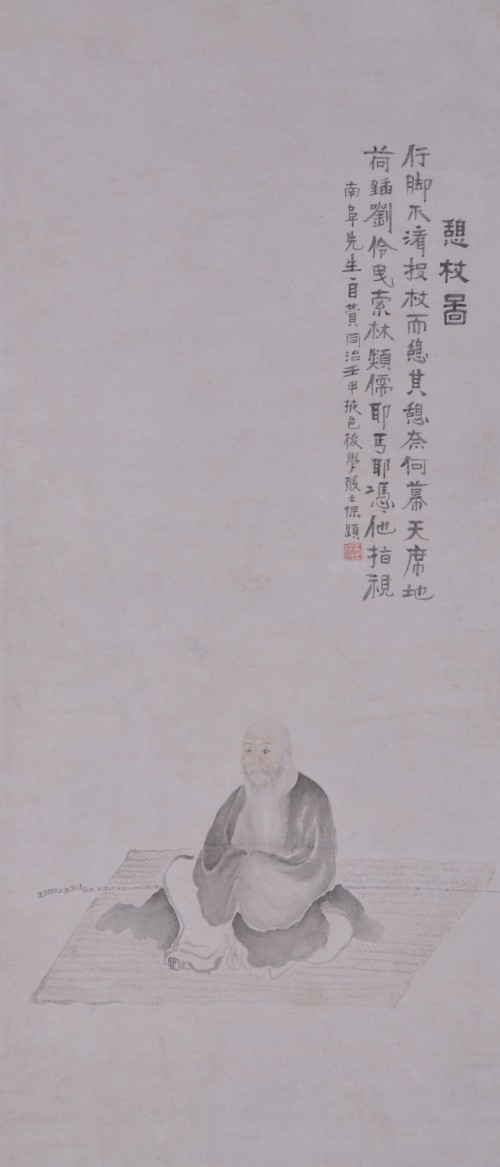 憩杖图
行脚不濟投杖而憩其憩奈何幕天席地
荷鍤劉伶曳索林類儒耶丐耶憑他指視
南阜先生自贊同治壬申掖邑後學張士保題